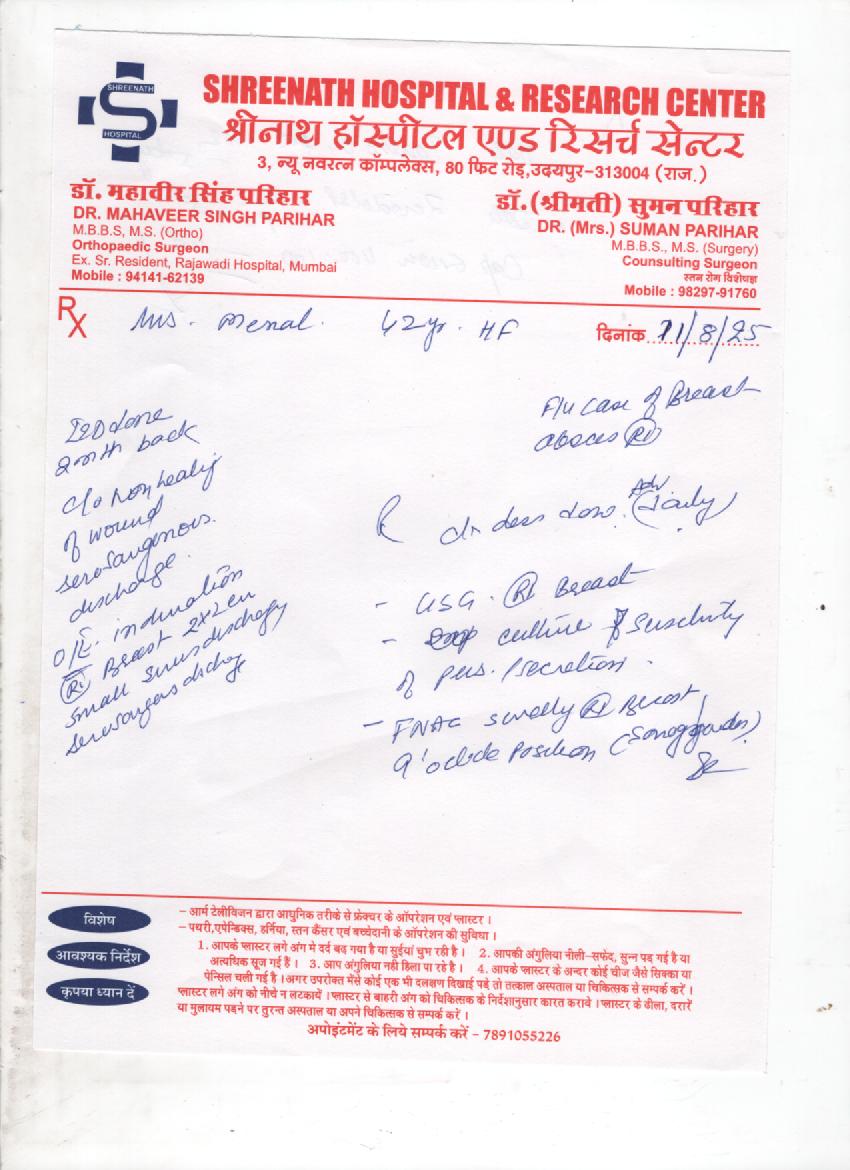 SHREENATH
HOSPITAL
SHREENATH HOSPITAL & RESEARCH CENTER
श्रीनाथ हॉस्पीटल एण्ड रिसर्च सेन्टर
3, न्यू नवरत्न कॉम्पलेक्स, 80 फिट रोड़,उदयपुर-313004 (राज.)
डॉ. महावीर सिंह परिहार
DR. MAHAVEER SINGH PARIHAR
M.B.B.S, M.S. (Ortho)
Orthopaedic Surgeon
Ex. Sr. Resident, Rajawadi Hospital, Mumbai
Mobile : 94141-62139
डॉ.(श्रीमती) सुमन परिहार
DR. (Mrs.) SUMAN PARIHAR
M.B.B.S., M.S. (Surgery)
Counsulting Surgeon
स्तन रोग विशेषज्ञ
Mobile : 98297-91760
Rx
Ms. 42yr. HF
दिनांक 11/8/25
I&D done
2 mth back
c/o Non healig
of wound
serosangenous.
discharge.
O/E. induration
(Rt) Breast 2x2 cm
small sinus dischargy
F/U case of Breast
absces (Rt)
daily
- USG. (Rt) Breast
- culture & 
of pus. / secretion.
- FNAC (Rt) Breast
9'o Position
विशेष
आवश्यक निर्देश
कृपया ध्यान दें
- आर्म टेलीविजन द्वारा आधुनिक तरीके से फ्रेक्चर के ऑपरेशन एवं प्लास्टर ।
- पथरी,एपेन्डिक्स, हर्निया, स्तन कैंसर एवं बच्चेदानी के ऑपरेशन की सुविधा ।
1. आपके प्लास्टर लगे अंग मे दर्द बढ़ गया है या सुईयां चुभ रही है । 2. आपकी अंगुलिया नीली-सफेद, सुन्न पड़ गई है या
अत्यधिक सूज गई हैं । 3. आप अंगुलिया नही हिला पा रहे है । 4. आपके प्लास्टर के अन्दर कोई चीज जैसे सिक्का या
पेन्सिल चली गई है । अगर उपरोक्त मेंसे कोई एक भी दलक्षण दिखाई पडे तो तत्काल अस्पताल या चिकित्सक से सम्पर्क करें ।
प्लास्टर लगे अंग को नीचे न लटकायें । प्लास्टर से बाहरी अंग को चिकित्सक के निर्देशानुसार कारत करावे । प्लास्टर के ढीला, दरारें
या मुलायम पडने पर तुरन्त अस्पताल या अपने चिकित्सक से सम्पर्क करें ।
अपोइंटमेंट के लिये सम्पर्क करें - 7891055226